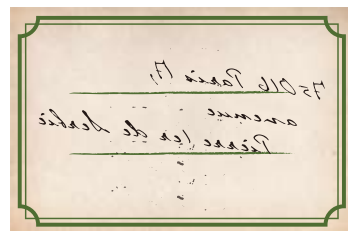 75016 Paris 17,
avenue
Pierre 1er de Serbie